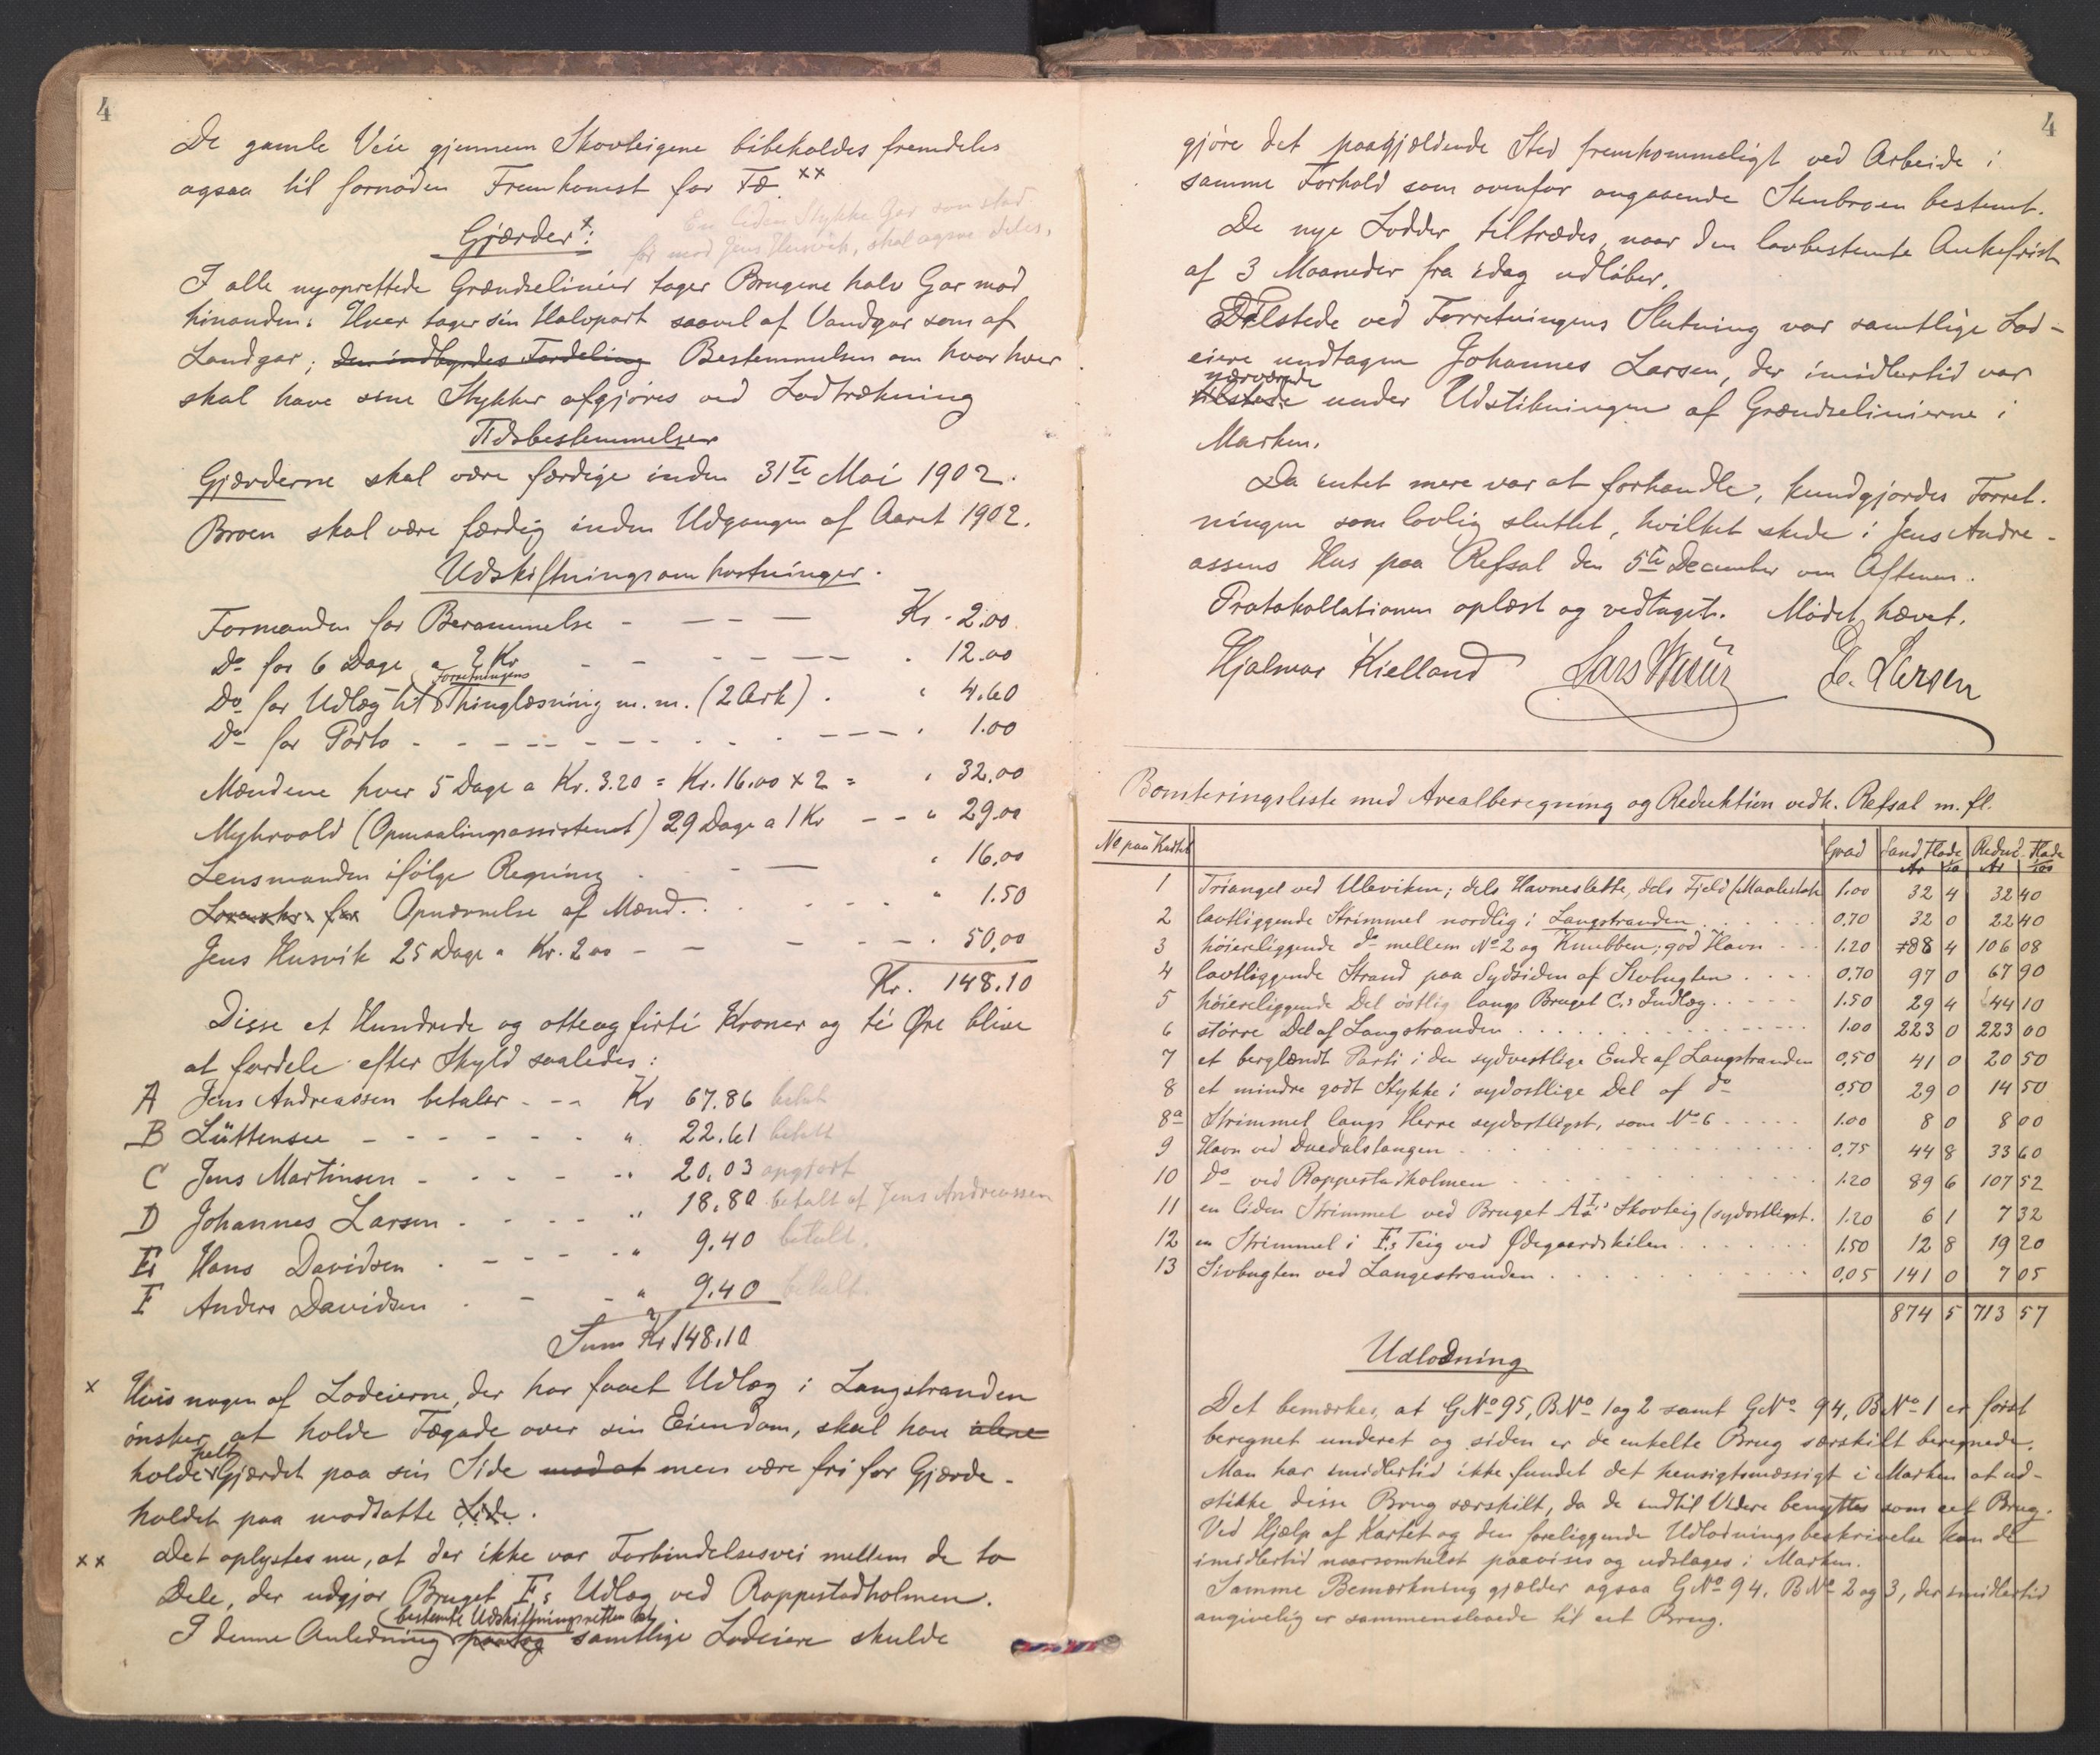 4
De gamle Veie gjennem Skovteigene bibeholdes fremdeles
ogsaa til fornøden Fremkomst for Fæ. xx
En liden Stykke Gar som stod
før mod Jens Husvik, skal ogsaa deles.
Gjærder x:
I alle nyoprettede Grændselinier tager Brugene halv Gar mod
hinanden. Hver tager sin Halvpart saavel af Vandgar som af
Landgar; den indbyrdes Fordeling Bestemmelsen om hvor hver
skal have sine Stykker afgjøres ved Lodtrækning
Tidsbestemmelser
Gjærderne skal være færdige inden 31te Mai 1902.
Broen skal være færdig inden Udgangen af Aaret 1902.
Udskiftningsomkostninger.
Formanden for Berammelse - — — — Kr. 2.00
Do for 6 Dage a 2 Kr - - - - — — " 12.00
Forretningens
Do for Udlæg til Thinglæsning m.m. (2 Ark) . " 4.60
Do for Porto - - - — — - - - - — — — " 1.00
Mændene hver 5 Dage a Kr. 3.20 = Kr. 16.00 x 2 = " 32.00
Myhrvold (Opmaalingsassistent) 29 Dage a 1 Kr — — " 29.00
Lensmanden ifølge Regning . - — " 16.00
for Opnævnelse af Mænd . . . . . . " 1.50
Jens Husvik 25 Dage a Kr. 2.00 — — — — . 50.00
Kr. 148.10
Disse et Hundrede og otteogførti Kroner og ti Øre blive
at fordele efter Skyld saaledes:
A Jens Andreassen betaler - — - Kr 67.86 betalt
B Lüttensee — - - - - - " 22.61 betalt
C Jens Martinsen - - - - - " 20.03 opgjort
D Johannes Larsen - - - - " 18.80 betalt af Jens Andreassen
E Hans Davidsen . - - - " 9.40 betalt.
F Anders Davidsen . - - " 9.40 betalt.
Sum Kr 148.10
x Hvis nogen af Lodeierne, der har faaet Udlæg i Langstranden
ønsker at holde Fægade over sin Eiendom, skal han alene
helt
holde Gjærdet paa sin Side mod at men være fri for Gjærde-
holdet paa modsatte Side.
xx Det oplystes nu, at der ikke var Forbindelsesvei mellem de to
Dele, der udgjør Bruget F's Udlæg ved Rappestadholmen.
bestemte Udskiftningsretten at
I denne Anledning samtlige Lodeiere skulde
4
gjøre det paagjældende Sted fremkommeligt ved Arbeide i
samme Forhold som ovenfor angaaende Stenbroen bestemt.
De nye Lodder tiltrædes, naar den lovbestemte Ankefrist
af 3 Maaneder fra idag udløber.
Tilstede ved Forretningens Slutning var samtlige Lod-
eiere undtagen Johannes Larsen, der imidlertid var
nærværende
tilstede under Udstikningen af Grændselinierne i
Marken.
Da intet mere var at forhandle, kundgjordes Forret-
ningen som lovlig sluttet, hvilket skede i Jens Andre-
assens Hus paa Refsal den 5te December om Aftenen.
Protokollationen oplæst og vedtaget. Mødet hævet.
Hjalmar Kielland Lars E. Larsen
Boniteringsliste med Arealberegning og Reduktion vedk. Refsal m. fl.
No paa Kartet Grad Sand Flade Reduc. Flade
Ar 1/10 Ar 1/100
1 Triangel ved Uleviken; dels Havneslette, dels Fjeld (Maalestok 1.00 32 4 32 40
2 lavtliggende Strimmel nordlig i Langstranden . . . . . 0.70 32 0 22 40
3 høiereliggende do mellem No 2 og Knubben; god Havn - - - 1.20 88 4 106 08
4 lavtliggende Strand paa Sydsiden af Sivbugten . . . . 0.70 97 0 67 90
5 høiereliggende Del østlig langs Bruget C's Indlæg . . - - - 1.50 29 4 44 10
6 større Del af Langstranden . . . . . . . . 1.00 223 0 223 00
7 et berglændt Parti i den sydvestlige Ende af Langstranden 0.50 41 0 20 50
8 et mindre godt Stykke i sydostlige Del af do 0.50 29 0 14 50
8a Strimmel langs Herre sydostligst, som No 6 . . . . . 1.00 8 0 8 00
9 Havn ved Duedalstangen . . . . . . . . 0.75 44 8 33 60
10 do ved Rappestadholmen . . . . . . . . 1.20 89 6 107 52
11 en liden Strimmel ved Bruget A's Skovteig (sydostligst. 1.20 6 1 7 32
12 en Strimmel i F's Teig ved Ødegaardskilen . . . . . . 1.50 12 8 19 20
13 Sivbugten ved Langestranden . . . . . . . . 0.05 141 0 7 05
874 5 713 57
Udlodning
Det bemærkes, at GNo 95, BNo 1 og 2 samt GNo 94, BNo 1 er først
beregnet underet og siden er de enkelte Brug særskilt beregnede.
Man har imidlertid ikke fundet det hensigtsmæssigt i Marken at ud-
stikke disse Brug særskilt, da de indtil Videre benyttes som eet Brug.
Ved Hjælp af Kartet og den foreliggende Udlodningsbeskrivelse kan de
imidlertid naarsomhelst paavises og udstages i Marken.
Samme Bemærkning gjælder ogsaa GNo 94. BNo 2 og 3, der imidlertid
angivelig er sammenslaaede til eet Brug.